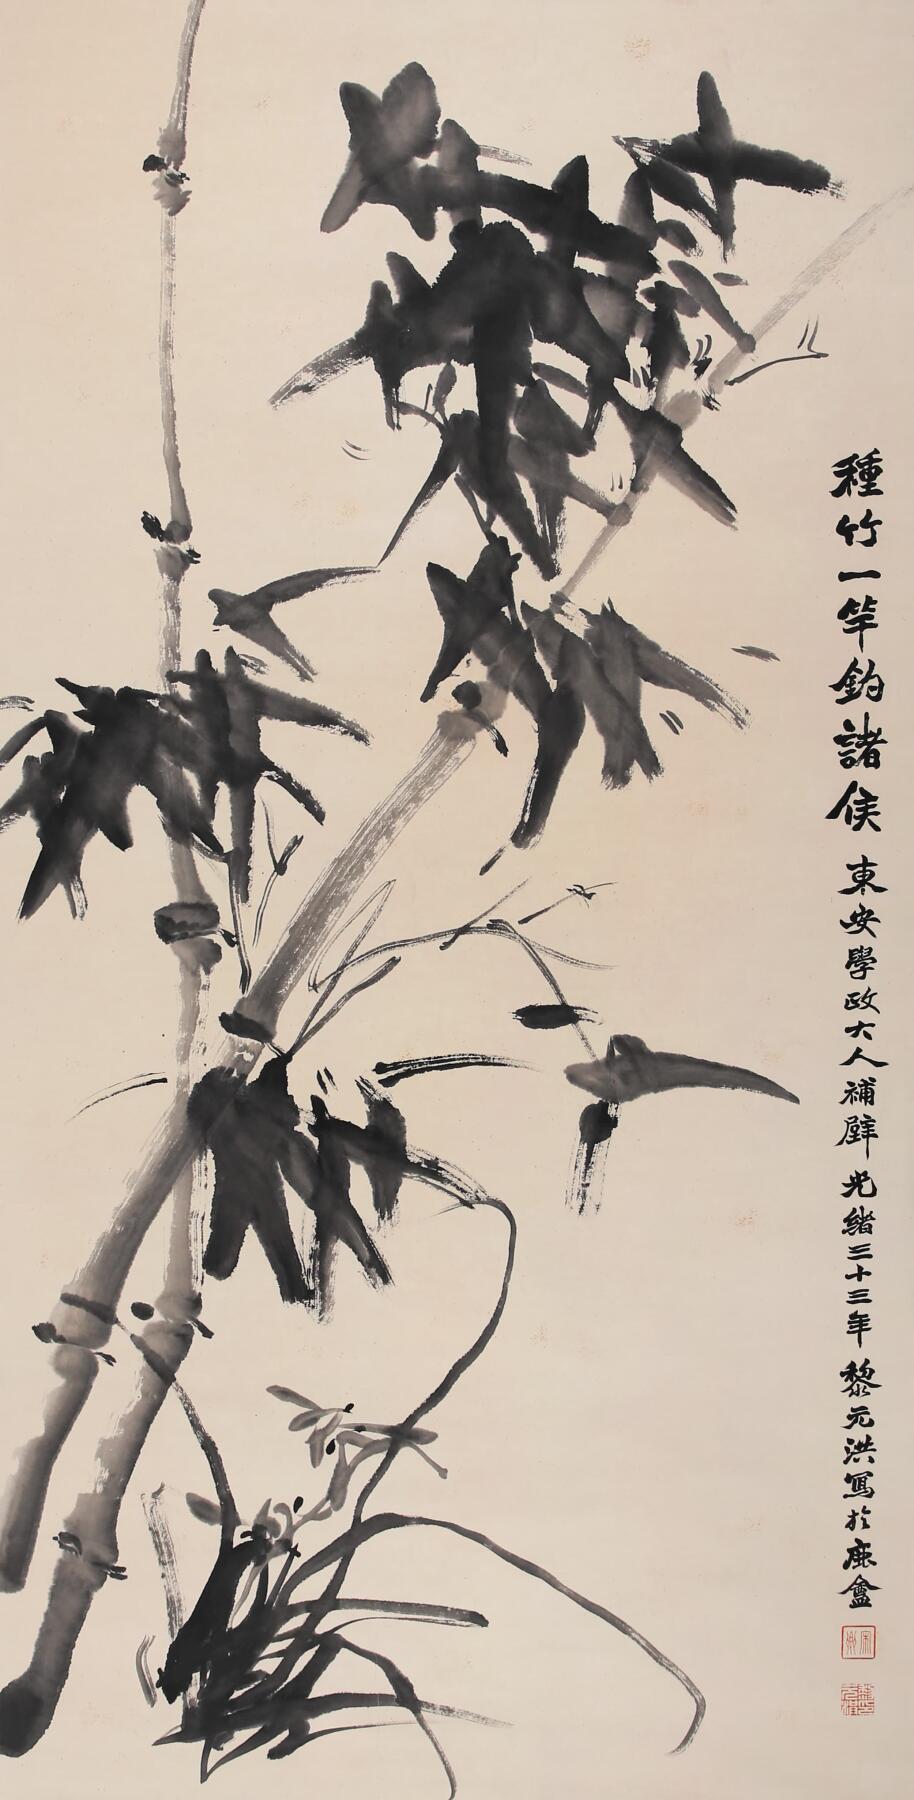 種竹一竿釣諸侯 東安學政大人補壁 光緒三十三年 黎元洪寫於鹿盦
宋卿
黎元洪